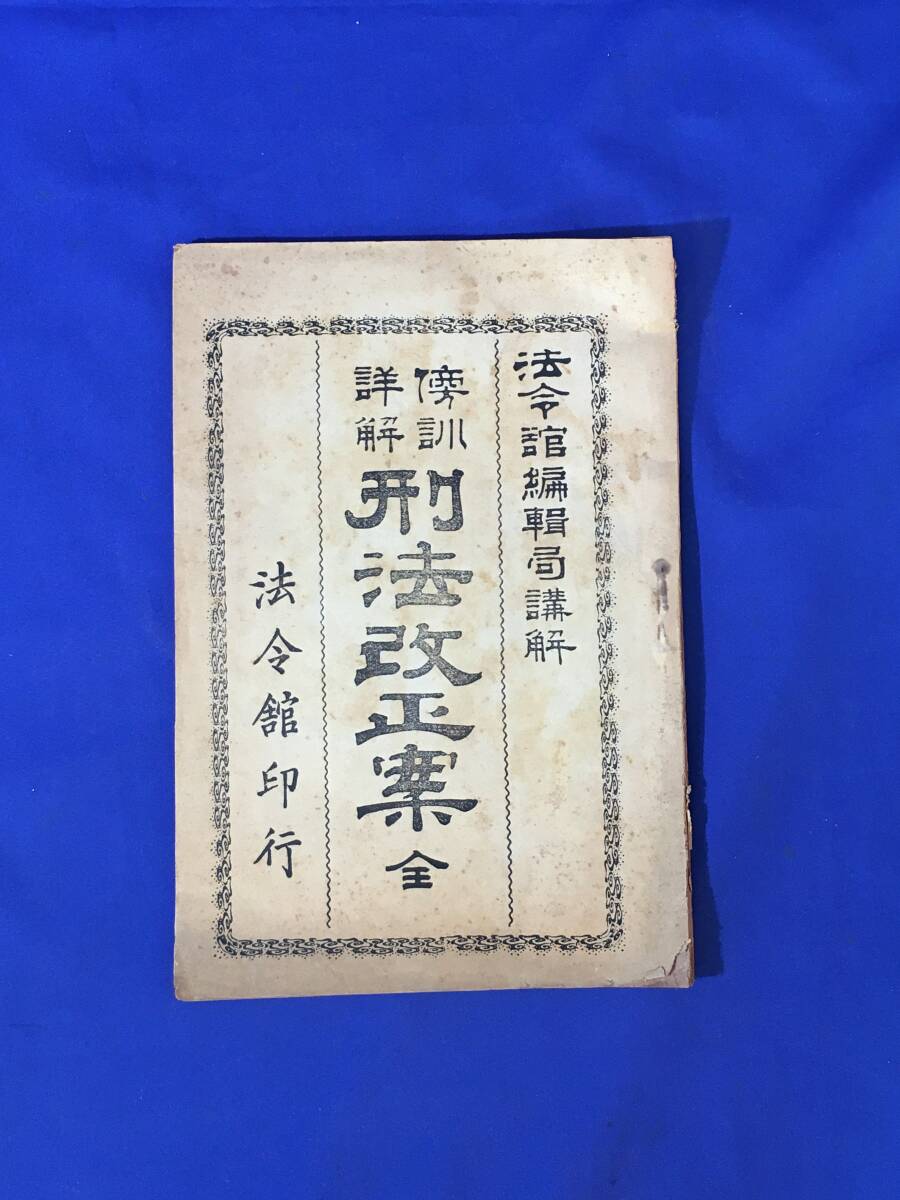 法令舘編輯局講解
傍訓
詳解
刑法改正案 全
法令舘印行